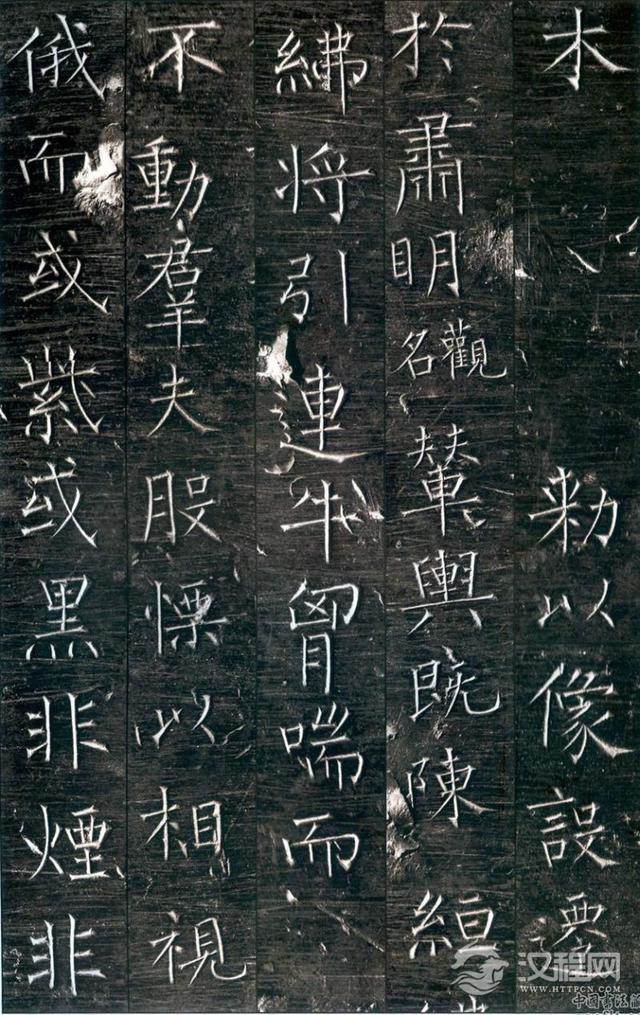 木勑以像設遷
於肅明觀名輦輿既陳絙
綍將引連牛胷喘而
不動羣夫股慄以相視
俄而或紫或黑非煙非
汉程网
WWW.HTTPCN.COM
中国书法